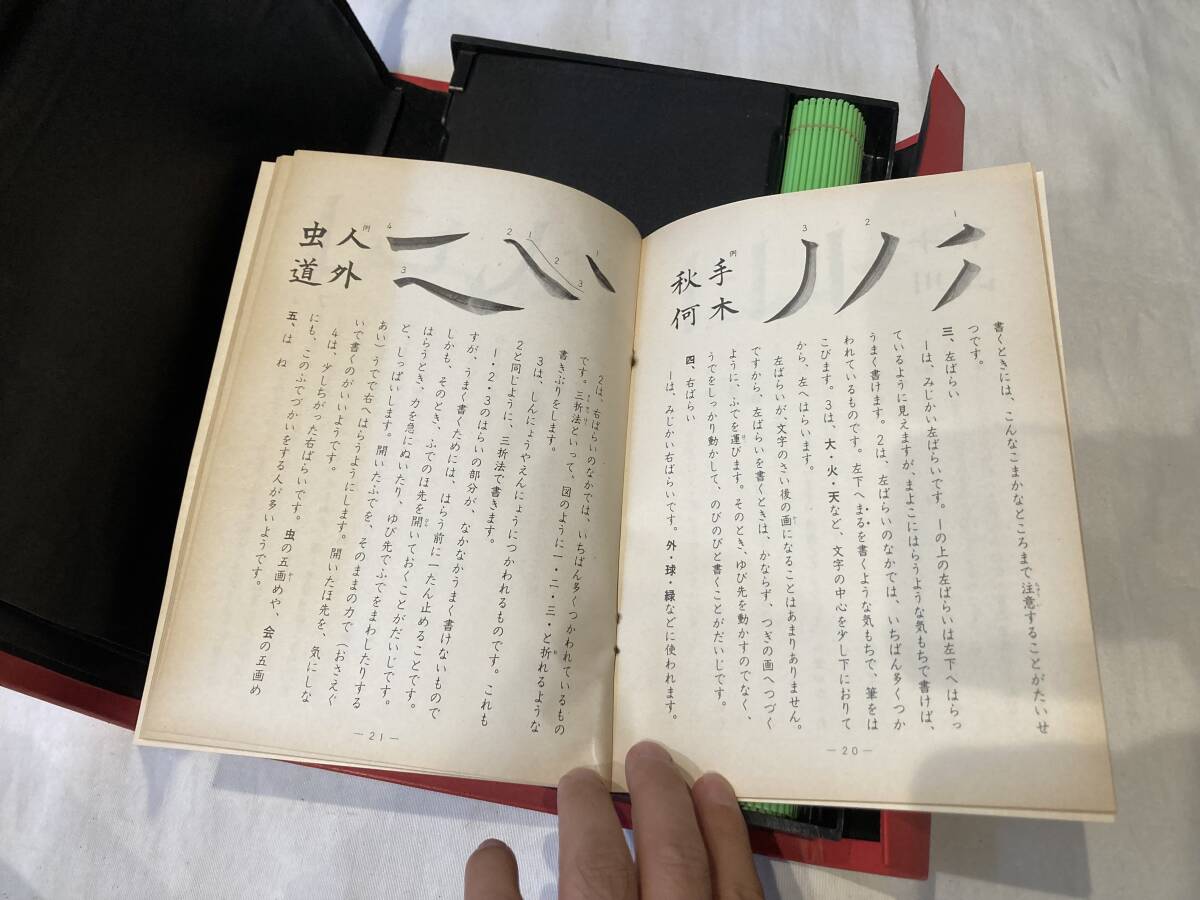 1
2
3
例
手木
秋何
書くときには、こんなこまかなところまで注意することがたいせ
つです。
三、左ばらい
1は、みじかい左ばらいです。1の上の左ばらいは左下へはらっ
ているように見えますが、まよこにはらうような気もちで書けば、
うまく書けます。2は、左ばらいのなかでは、いちばん多くつか
われているものです。左下へまるを書くような気もちで、筆をは
こびます。3は、大・火・天など、文字の中心を少し下におりて
から、左へはらいます。
左ばらいが、文字のさい後の画になることはあまりありません。
ですから、左ばらいを書くときは、かならず、つぎの画へつづく
ように、ふでを運びます。そのとき、ゆび先を動かすのでなく、
うでをしっかり動かして、のびのびと書くことがだいじです。
四、右ばらい
1は、みじかい右ばらいです。外・球・緑などに使われます。
—20—
1
2
1
2
3
3
4
例
人外
虫道
2は、右ばらいのなかでは、いちばん多くつかわれているもの
です。三折法といって、図のように一・二・三・と折れるような
書きぶりをします。
3は、しんにょうやえんにょうにつかわれるものです。これも
2と同じように、三折法で書きます。
1・2・3のはらいの部分が、なかなかうまく書けないもので
すが、うまく書くためには、はらう前に一たん止めることです。
しかも、そのとき、ふでのほ先を開いておくことがだいじです。
はらうとき、力を急にぬいたり、ゆび先でふでをまわしたりする
と、しっぱいします。開いたふでを、そのままの力で(おさえぐ
あい)うでで右へはらうようにします。開いたほ先を、気にしな
いで書くのがいいようです。
4は、少しちがった右ばらいです。虫の五画めや、会の五画め
にも、このふでづかいをする人が多いようです。
五、は ね
—21—